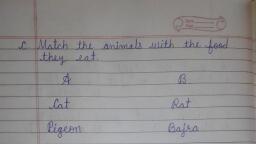 C Match the animals with the food
they eat.
A B
Cat Rat
Pigeon Bajra